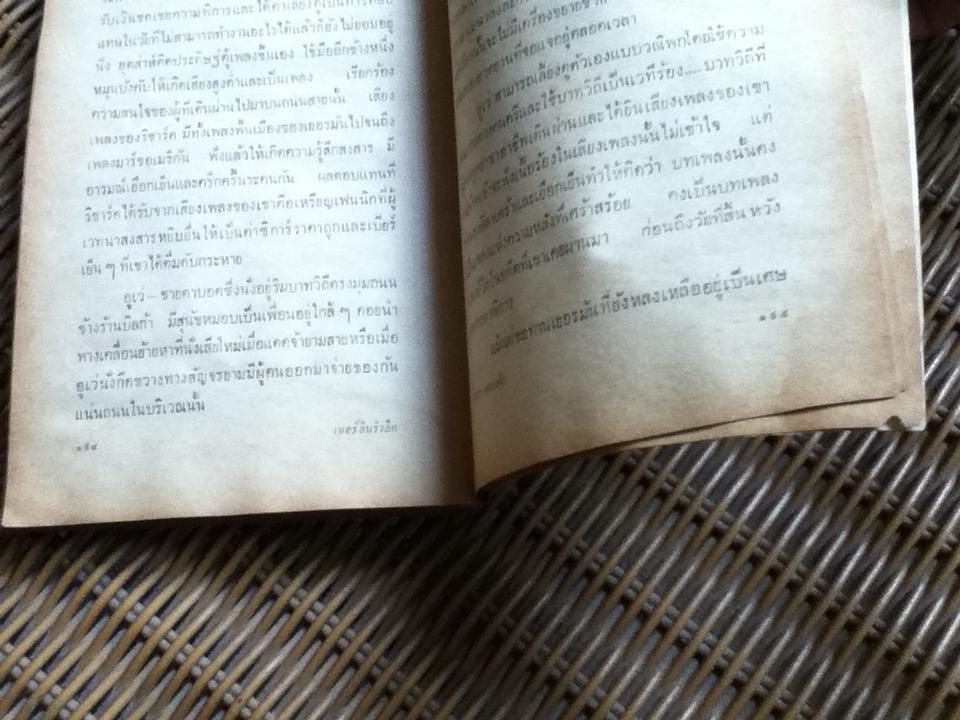 รับเงินชดเชยความพิการและได้ค่าเลี้ยงดูเป็นการตอบ
แทนในวัยที่ไม่สามารถทำงานอะไรได้แล้วก็ยังไม่ยอมอยู่
นิ่ง อุตส่าห์คิดประดิษฐ์ตู้เพลงขึ้นเอง ใช้มืออีกข้างหนึ่ง
หมุนบังคับให้เกิดเสียงสูงต่ำและเป็นเพลง เรียกร้อง
ความสนใจของผู้ที่เดินผ่านไปมาบนถนนสายนั้น เสียง
เพลงของริชาร์ด มีทั้งเพลงพื้นเมืองของเยอรมันไปจนถึง
เพลงมาร์ชอเมริกัน ฟังแล้วให้เกิดความรู้สึกสงสาร มี
อารมณ์เยือกเย็นและครึกครื้นระคนกัน ผลตอบแทนที่
ริชาร์ดได้รับจากเสียงเพลงของเขาคือเหรียญเฟนนิกที่ผู้
เวทนาสงสารหยิบยื่นให้เป็นค่าซิการ์ราคาถูกและเบียร์
เย็น ๆ ที่เขาได้ดื่มดับกระหาย
อูเว่ – ชายตาบอดซึ่งนั่งอยู่ริมบาทวิถีตรงมุมถนน
ข้างร้านบิลก้า มีสุนัขหมอบเป็นเพื่อนอยู่ใกล้ ๆ คอยนำ
ทางเคลื่อนย้ายหาที่นั่งเสียใหม่เมื่อแดดจ้ายามสายหรือเมื่อ
อูเว่นั่งกีดขวางทางสัญจรยามมีผู้คนออกมาจ่ายของกัน
แน่นถนนในบริเวณนั้น
เบอร์ลินรำลึก
๑๙๔
จะไม่มีเครื่องขยายเสียง
ที่จอแจอยู่ตลอดเวลา
อูเว่ สามารถเลี้ยงดูตัวเองแบบวณิพกโดยใช้ความ
ดนตรีและใช้บาทวิถีเป็นเวทีร้อง.... บาทวิถีที่
อาชีพเดินผ่านและได้ยินเสียงเพลงของเขา
จะฟังเนื้อร้องในเสียงเพลงนั้นไม่เข้าใจ แต่
เศร้าและเยือกเย็นทำให้คิดว่า บทเพลงนั้นคง
แห่งความหลังที่เศร้าสร้อย คงเป็นบทเพลง
ชีวิตในอดีตที่เขาเคยผ่านมา ก่อนถึงวัยที่สิ้นหวัง
พิการ
แม้แต่ขอทานเยอรมันที่ยังหลงเหลืออยู่เป็นเศษ
๑๙๕